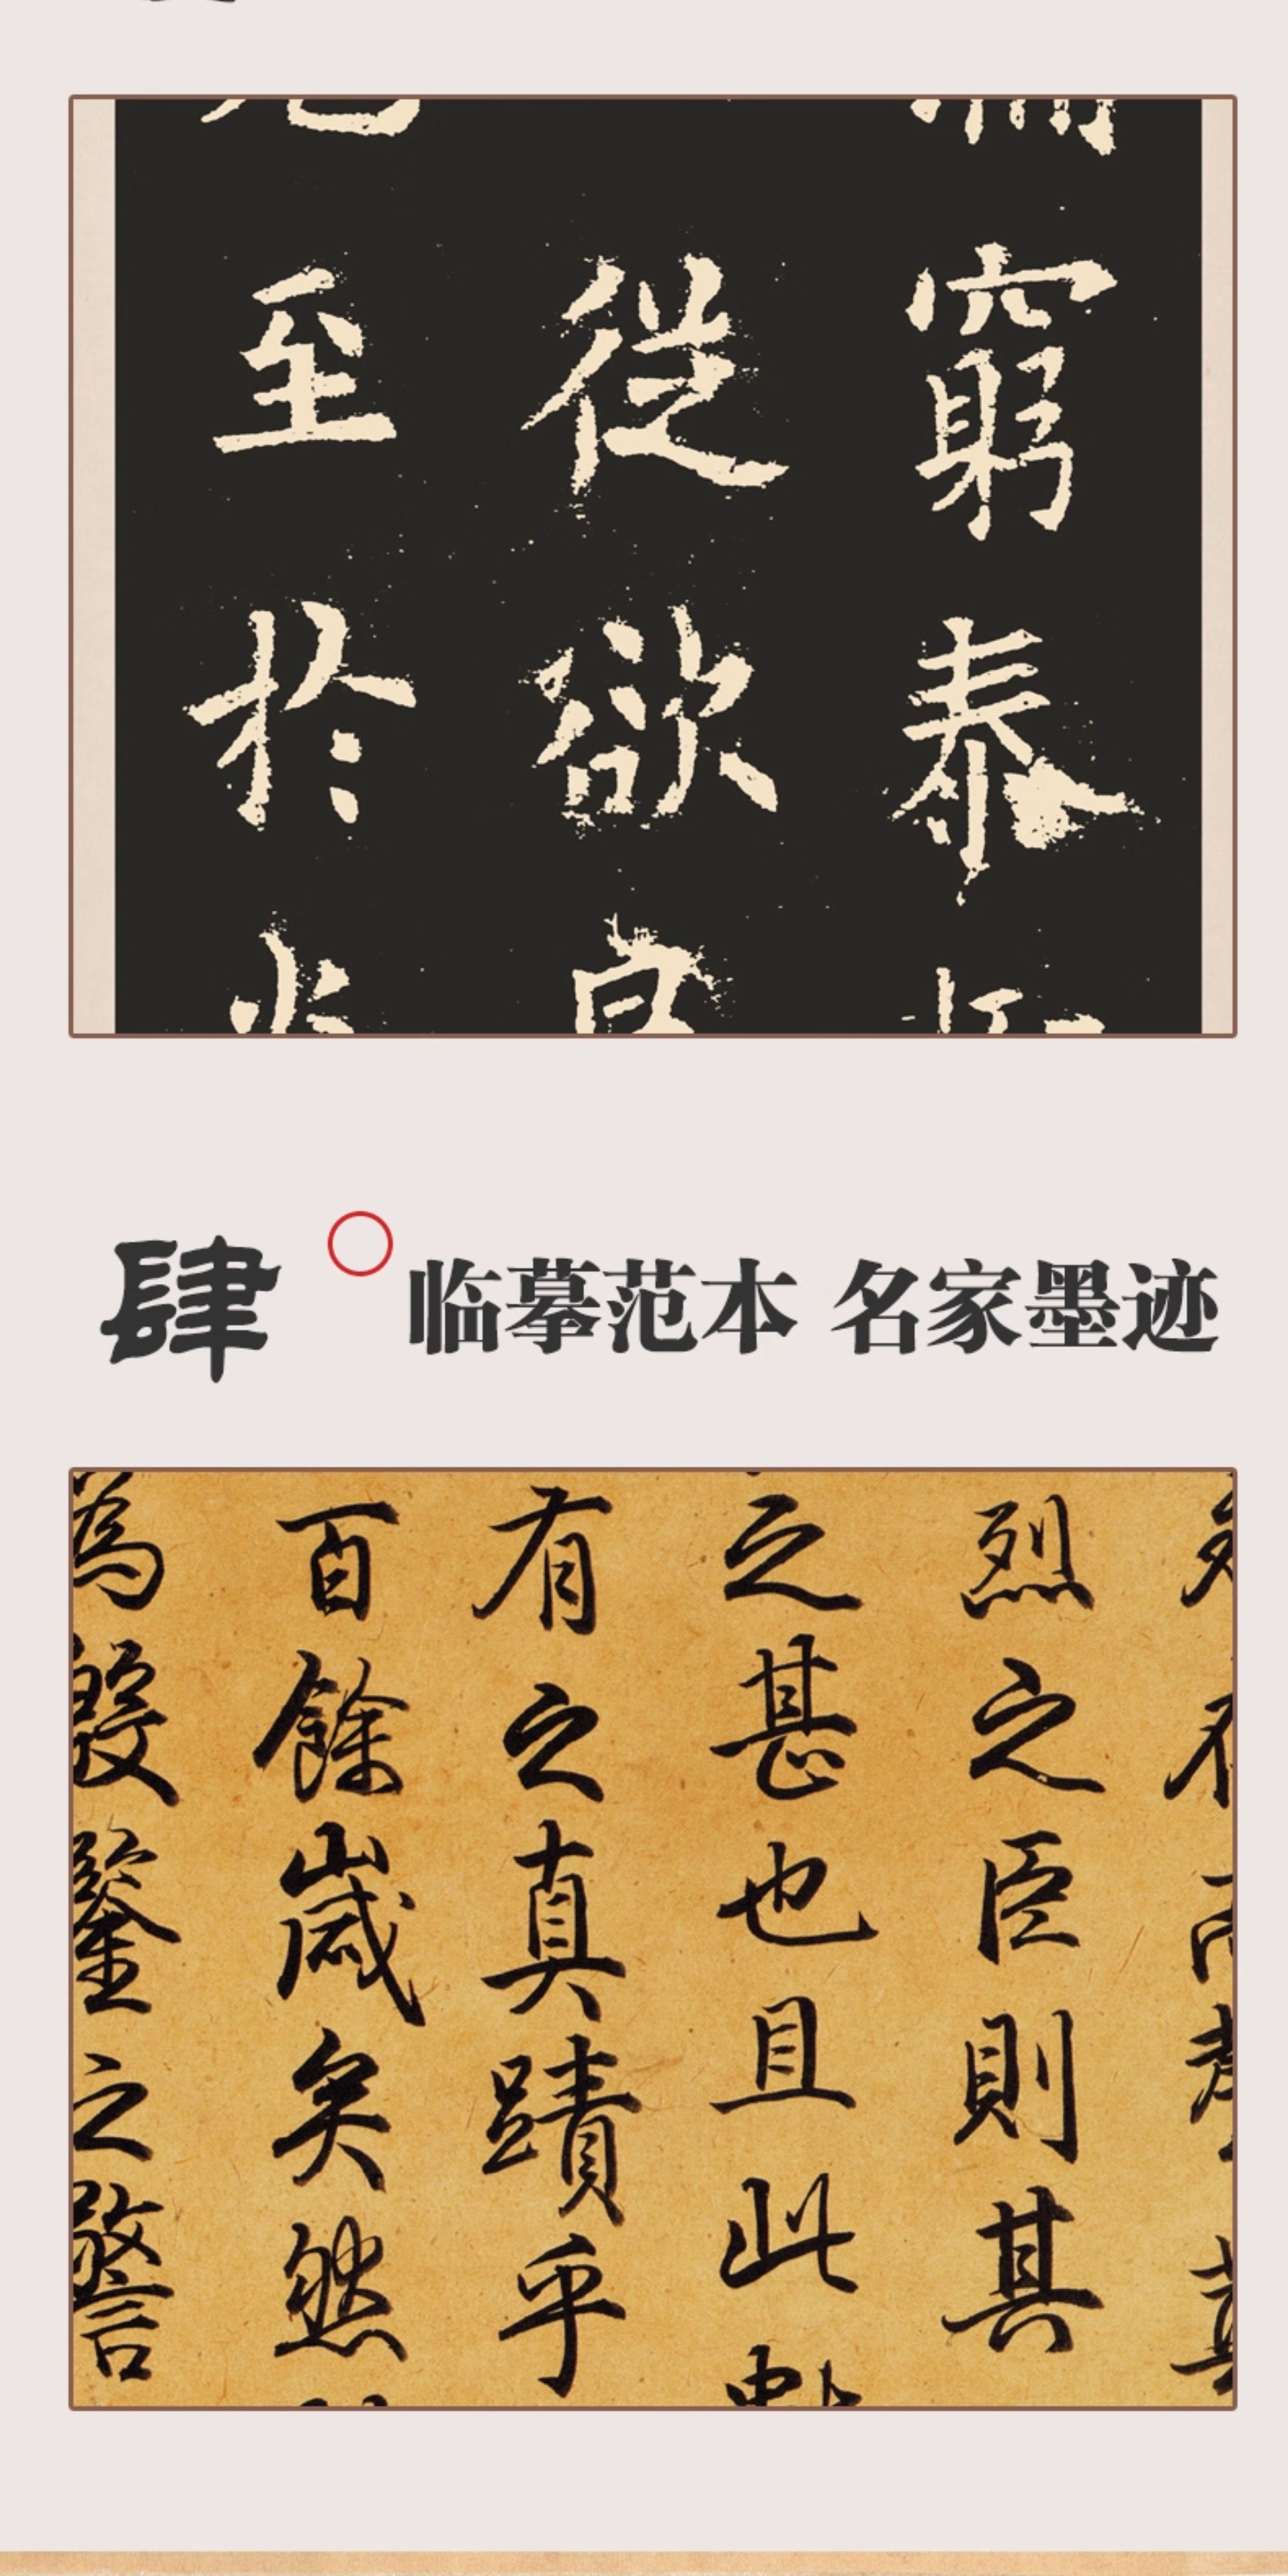 窮泰
從欲
至於
肆
临摹范本 名家墨迹
烈之臣則其
之甚也且此
有之真蹟乎
百餘歲矣然
為殷鑒之警